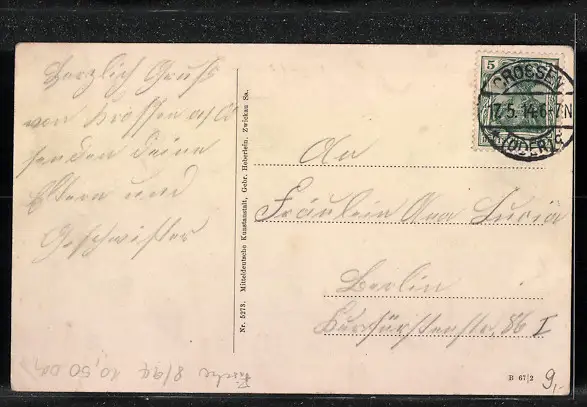 Herzlich Gruß
von Krossen a/O
senden deine
Eltern und
Geschwister
Nr. 5273. Mitteldeutsche Kunstanstalt, Gebr. Heberlein, Zwickau Sa.
5
CROSSEN
17.5.14.6-7N
(ODER)
An
Fräulein Luzia
Berlin
Kurfürstenstr. 86 I
B 67/2
9,-
10,50